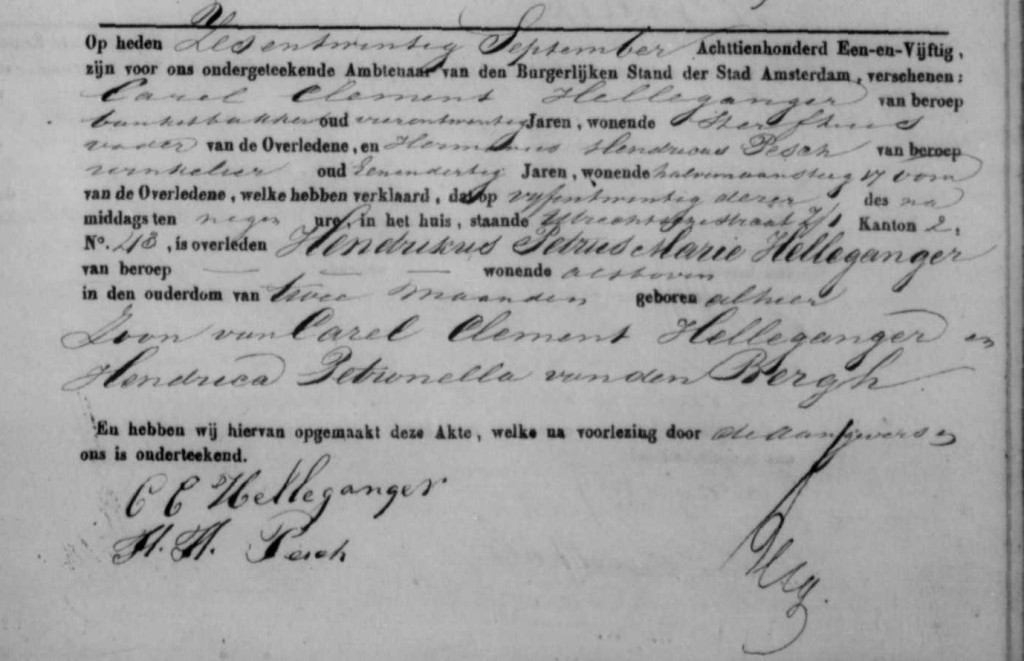 Op heden Zesentwintig September Achttienhonderd Een-en-Vijftig,
zijn voor ons ondergeteekende Ambtenaar van den Burgerlijken Stand der Stad Amsterdam, verschenen:
Carel Clement Helleganger van beroep
banketbakker oud vierentwintig Jaren, wonende Sterfhuis
vader van de Overledene, en Hermanus Hendricus Pesch van beroep
winkelier oud Eenendertig Jaren, wonende halvemaansteeg 17 oom
van de Overledene, welke hebben verklaard, dat op vijfentwintig dezer des na
middags ten negen ure, in het huis, staande Utrechtschestraat Kanton 2,
No. 48, is overleden Hendrikus Petrus Marie Helleganger
van beroep — — — wonende alsboven
in den ouderdom van twee maanden geboren alhier
Zoon van Carel Clement Helleganger en
Hendrica Petronella van den Bergh
En hebben wij hiervan opgemaakt deze Akte, welke na voorlezing door de aangevers en
ons is onderteekend.
C C Helleganger
H. H. Pesch